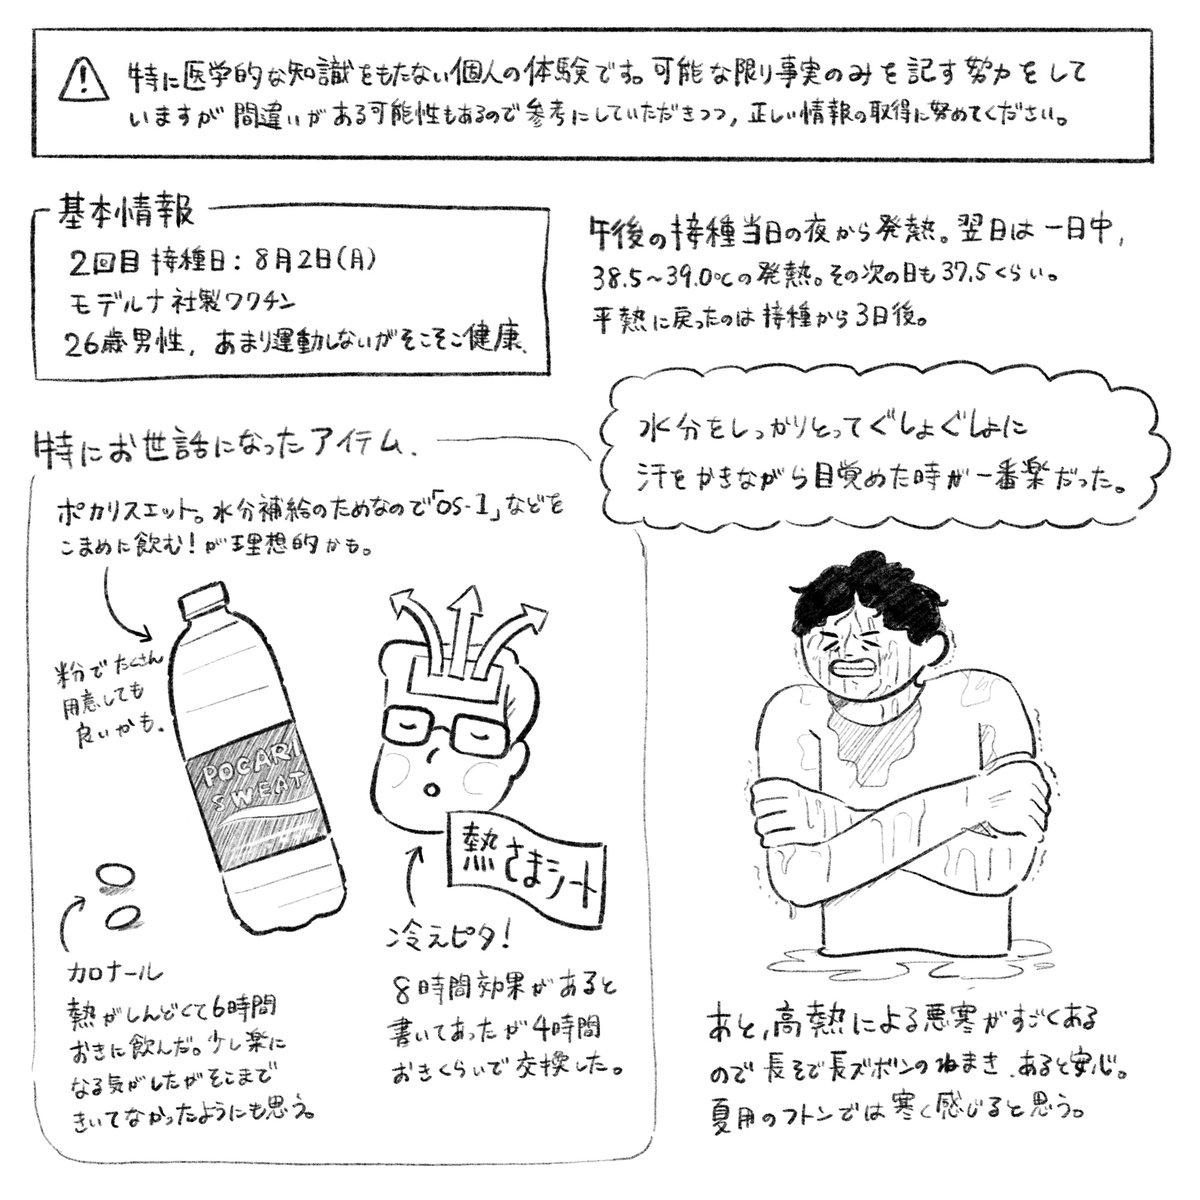 特に医学的な知識をもたない個人の体験です。可能な限り事実のみを記す努力をして
いますが間違いがある可能性もあるので参考にしていただきつつ,正しい情報の取得に努めてください。
基本情報
2回目接種日:8月2日(月)
モデルナ社製ワクチン
26歳男性,あまり運動しないがそこそこ健康.
午後の接種当日の夜から発熱。翌日は一日中,
38.5~39.0℃の発熱。その次の日も37.5くらい。
平熱に戻ったのは接種から3日後。
水分をしっかりとってぐしょぐしょに
汗をかきながら目覚めた時が一番楽だった。
特にお世話になったアイテム.
ポカリスエット。水分補給のためなので「OS-1」などを
こまめに飲む!が理想的かも。
粉でたくさん
用意しても
良いかも.
POCARI
SWEAT
熱さまシート
カロナール
熱がしんどくて6時間
おきに飲んだ。少し楽に
なる気がしたがそこまで
きいてなかったようにも思う。
冷えピタ!
8時間効果があると
書いてあったが4時間
おきくらいで交換した。
あと,高熱による悪寒がすごくある
ので長そで長ズボンのねまき.あると安心。
夏用のフトンでは寒く感じると思う。